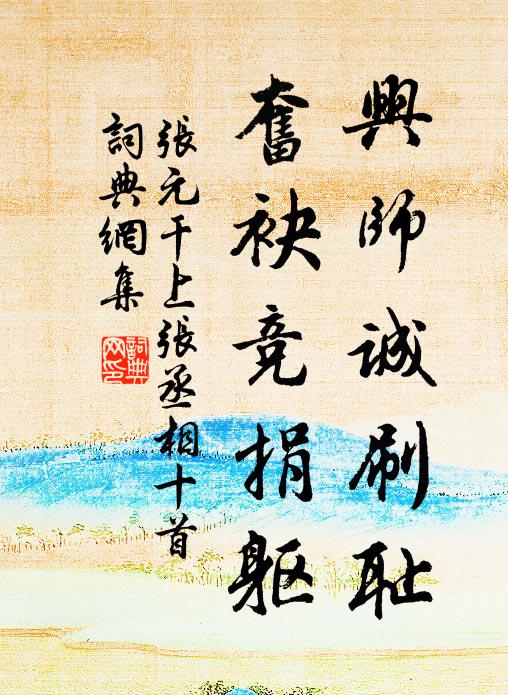 興師誠刷恥
奮袂竞捐軀
張元干上張丞相十首
詞典網集
詞典网印